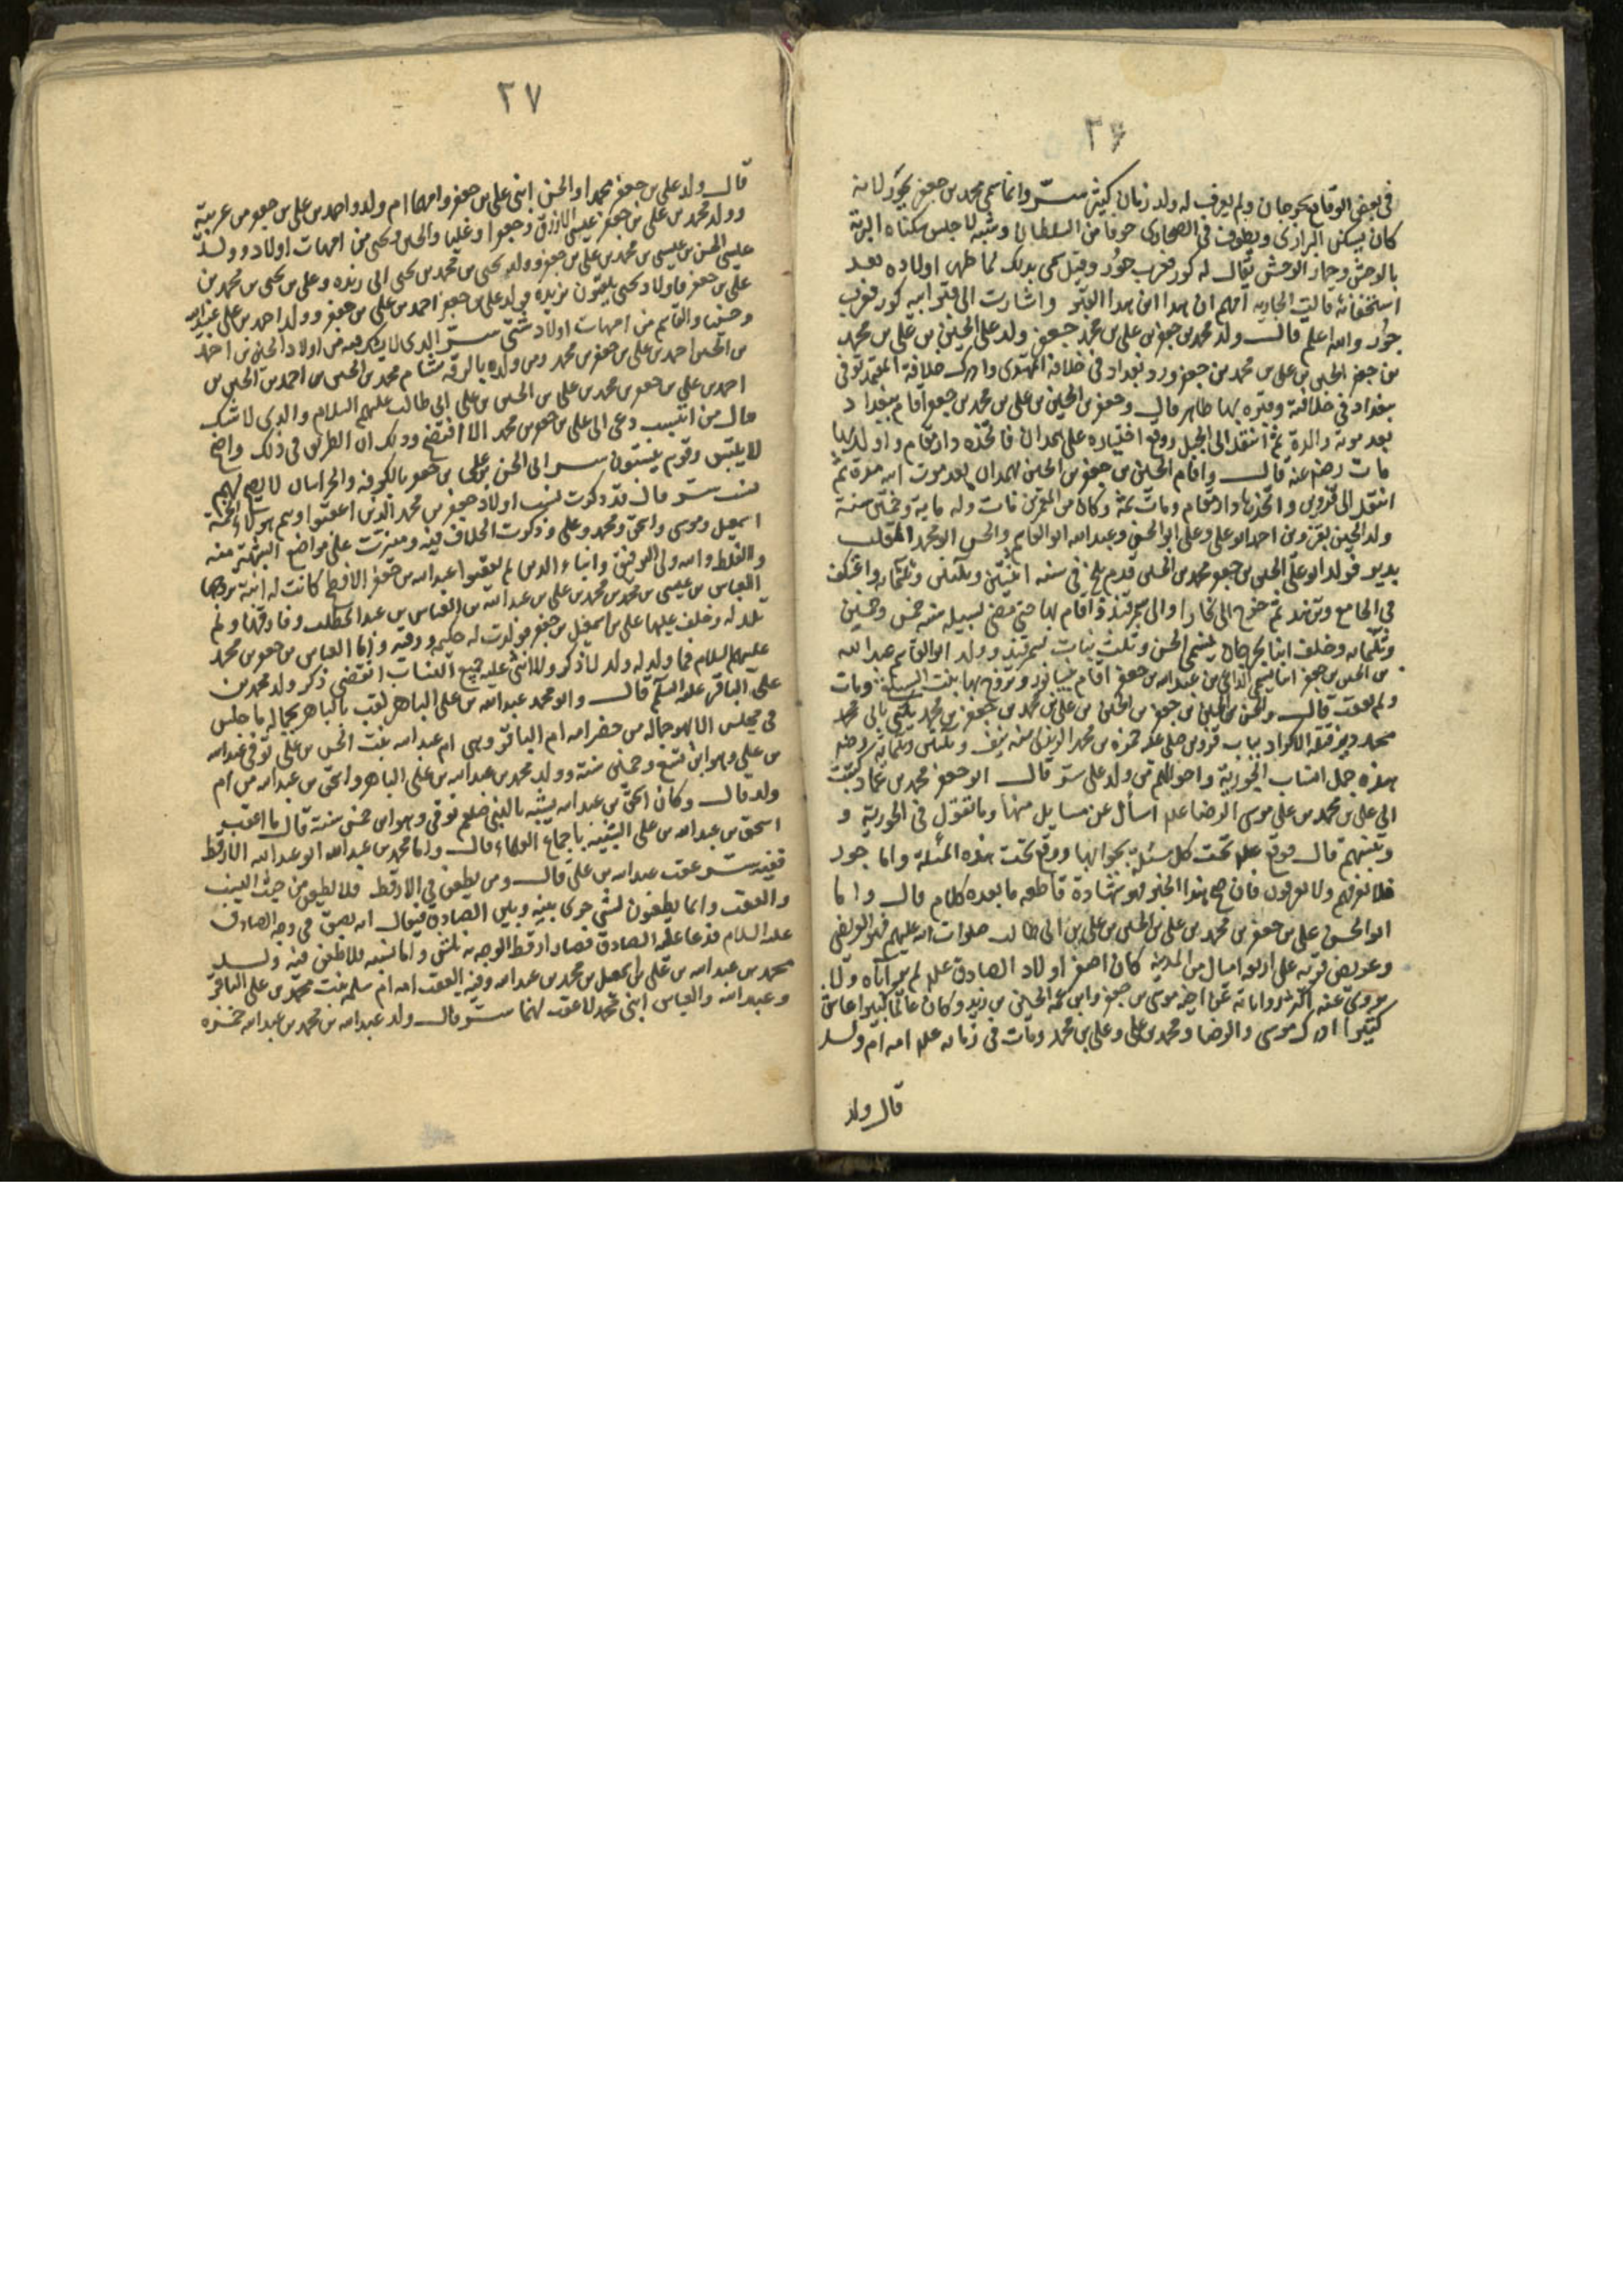 ٣٦
في بعض الوقايع بجرجان ولم يعرف له ولد زمان كثير ستر وانما سمى محمد بن جعفر بجور لانه
كان يسكن البراري ويطوف في الصحاري خوفا من السلطان وشبه لاجل سكناه البرية
بالوحش وحمار الوحش يقال له كور فعرب جور وقيل سمى بذلك لما ظهر اولاده بعد
استخفائه قالت الجارية انهم ان هذا ابن هذا القبر واشارت الى قبر ابيه كور فعرب
جور والله اعلم قال ولد محمد بن جعفر بن علي بن محمد جعفر ولد علي الحسين بن علي بن محمد
بن جعفر الحسين بن علي بن محمد بن جعفر ورد بغداد في خلافة المهتدى وادرك خلافة المعتمد توفى
ببغداد في خلافته وقبره بها ظاهر قال وجعفر بن الحسين بن علي بن محمد بن جعفر اقام ببغداد
بعد موته والده ثم انتقل الى الجبل ووقع اختياره على همدان فاتخذه دار مقام واولد بها
مات رضى عنه قال واقام الحسين بن جعفر بن الحسين بهمدان بعد موت ابيه مدة ثم
انتقل الى قزوين واتخذها دار مقام ومات ثمة وكان من المعمرين مات وله ماية وخمسين سنة
ولد الحسين بقزوين احمد ابو علي وعلي ابو الحسن وعبد الله ابو القاسم والحسن ابو محمد الملقب
بديو فولد ابو علي الحسين بن جعفر محمد بن الحسين قدم بلخ في سنة اثنتين وثلثين وثلثماية واعتكف
في الجامع ثم خرج الى بخارا والى سمرقند فاقام بها حتى مضى لسبيله سنة خمس وخمسين
وثلثمايه وخلف ابنا بجرجان يسمى الحسن وثلث بنات بسمرقند وولد ابو القاسم عبد الله
بن الحسين بن جعفر ابنا يسمى الداعي بن عبد الله بن جعفر اقام بنيسابور وتزوج بها بنت السيد ومات
ولم يعقب قال والحسن بن الحسين بن جعفر بن الحسين بن علي بن محمد بن جعفر بن محمد يكنى بابي محمد
هذه جمل انساب الجورية واخوالهم من ولد علي ستر قال ابو جعفر محمد بن عمار كتبت
الى علي بن محمد بن علي موسى الرضا علم اسأل عن مسايل منها وما تقول في الجورية و
ونسبهم قال فوقع علم تحت كل مسئلة بجوابها ووقع تحت هذه المسئلة واما جور
فلا نعرفهم ولا يعرفون فان صح هذا الخبر فهو شهادة قاطعه ما بعده كلام قال واما
ابو الحسن علي بن جعفر بن محمد بن علي بن الحسين بن علي بن ابي طالب صلوات الله عليهم فهو العريضى
وعريض قرية على اربع اميال من المدينة كان اصغر اولاد الصادق علم لم ير اباه ولا
يروى عنه اكثر رواياته عن اخيه موسى بن جعفر وابن عمه الحسين بن زيد وكان عالما كبيرا عاش
كثيرا ادرك موسى والرضا ومحمد بن علي وعلي بن محمد ومات في زمانه علم امه ام ولد
قال ولد
٢٧
قال ولد علي بن جعفر محمدا والحسن ابنى علي بن جعفر وامهما ام ولد واحمد بن علي بن جعفر من عربية
وولد محمد بن علي بن جعفر عيسى الازرق وجعفرا وعليا والحسين ويحيى من امهات اولاد وولد
عيسى الحسن بن عيسى بن محمد بن علي بن جعفر وولد يحيى بن محمد بن يحيى الى زيده وعلي بن يحيى بن محمد بن
علي بن جعفر فاولاد يحيى يلقبون بزيده وولد علي بن جعفر احمد بن علي بن جعفر وولد احمد بن علي عبيد الله
وحسنا والقاسم من امهات اولاد شتى ستر الذي لا يشك فيه من اولاد الحسين بن احمد
بن الحسن احمد بن علي بن جعفر بن محمد ومن ولده بالرقة بشام محمد بن الحسن بن احمد بن الحسين بن
احمد بن علي بن جعفر بن محمد بن علي بن الحسين بن علي ابي طالب عليهم السلام والذي لا شك
قال من انتسب دعى الى علي بن جعفر بن محمد الا افتضح وذلك ان الطريق في ذلك واضح
لا يلتبس وقوم ينسبون الى الحسن بن علي بن جعفر بالكوفة والخراسان لا يصح لهم
نسب ستر قال قد ذكرت نسب اولاد جعفر بن محمد الذين اعقبوا وهم هؤلاء الخمسة
اسمعيل وموسى واسحق ومحمد وعلي وذكرت الخلاف فيه وميزت على مواضع التهمة منه
والغلط والله ولى التوفيق وابناء الذين لم يعقبوا عبد الله بن جعفر الافطح كانت له ابنة تزوجها
العباس بن عيسى بن محمد بن محمد بن علي بن عبد الله بن العباس بن عبد المطلب وفارقها ولم
تلد له وخلف عليها علي بن اسمعيل بن جعفر فولدت له حكيم ورقيه واما العباس بن جعفر بن محمد
عليهم السلام فما ولد له ولد لا ذكر ولا انثى عليه جميع النساب انقضى ذكر ولد محمد بن
علي الباقر عليه السلم قال وابو محمد عبد الله بن علي الباهر لقب بالباهر بجماله ما جلس
في مجلس الا بهر جماله من حضر امه ام الباقر وهى ام عبد الله بنت الحسن بن علي توفى عبد الله
بن علي وهو ابن سبع وخمسين سنة وولد محمد بن عبد الله بن علي الباهر واسحق بن عبد الله من ام
ولد قال وكان اسحق بن عبد الله يشبه بالنبي صلعم توفى وهو ابن خمس سنة قال ما اعقب
اسحق بن عبد الله بن علي البتة باجماع العلماء قال واما محمد بن عبد الله ابو عبد الله الارقط
ففيه ستر عقب عبد الله بن علي قال ومن يطعن في الارقط فلا يطعن من حيث النسب
والعقب وانما يطعنون لشئ جرى بينه وبين الصادق فيقال انه بصق في وجه الصادق
عليه السلام فدعا عليه الصادق فصار ارقط الوجه به نمش واما نسبه فلا طعن فيه ولد
محمد بن عبد الله بن علي اسمعيل بن محمد بن عبد الله وفيه العقب امه ام سلمه بنت محمد بن علي الباقر
وعبد الله والعباس ابنى محمد لا عقب لهما ستر قال ولد عبد الله بن محمد بن عبد الله حمزه